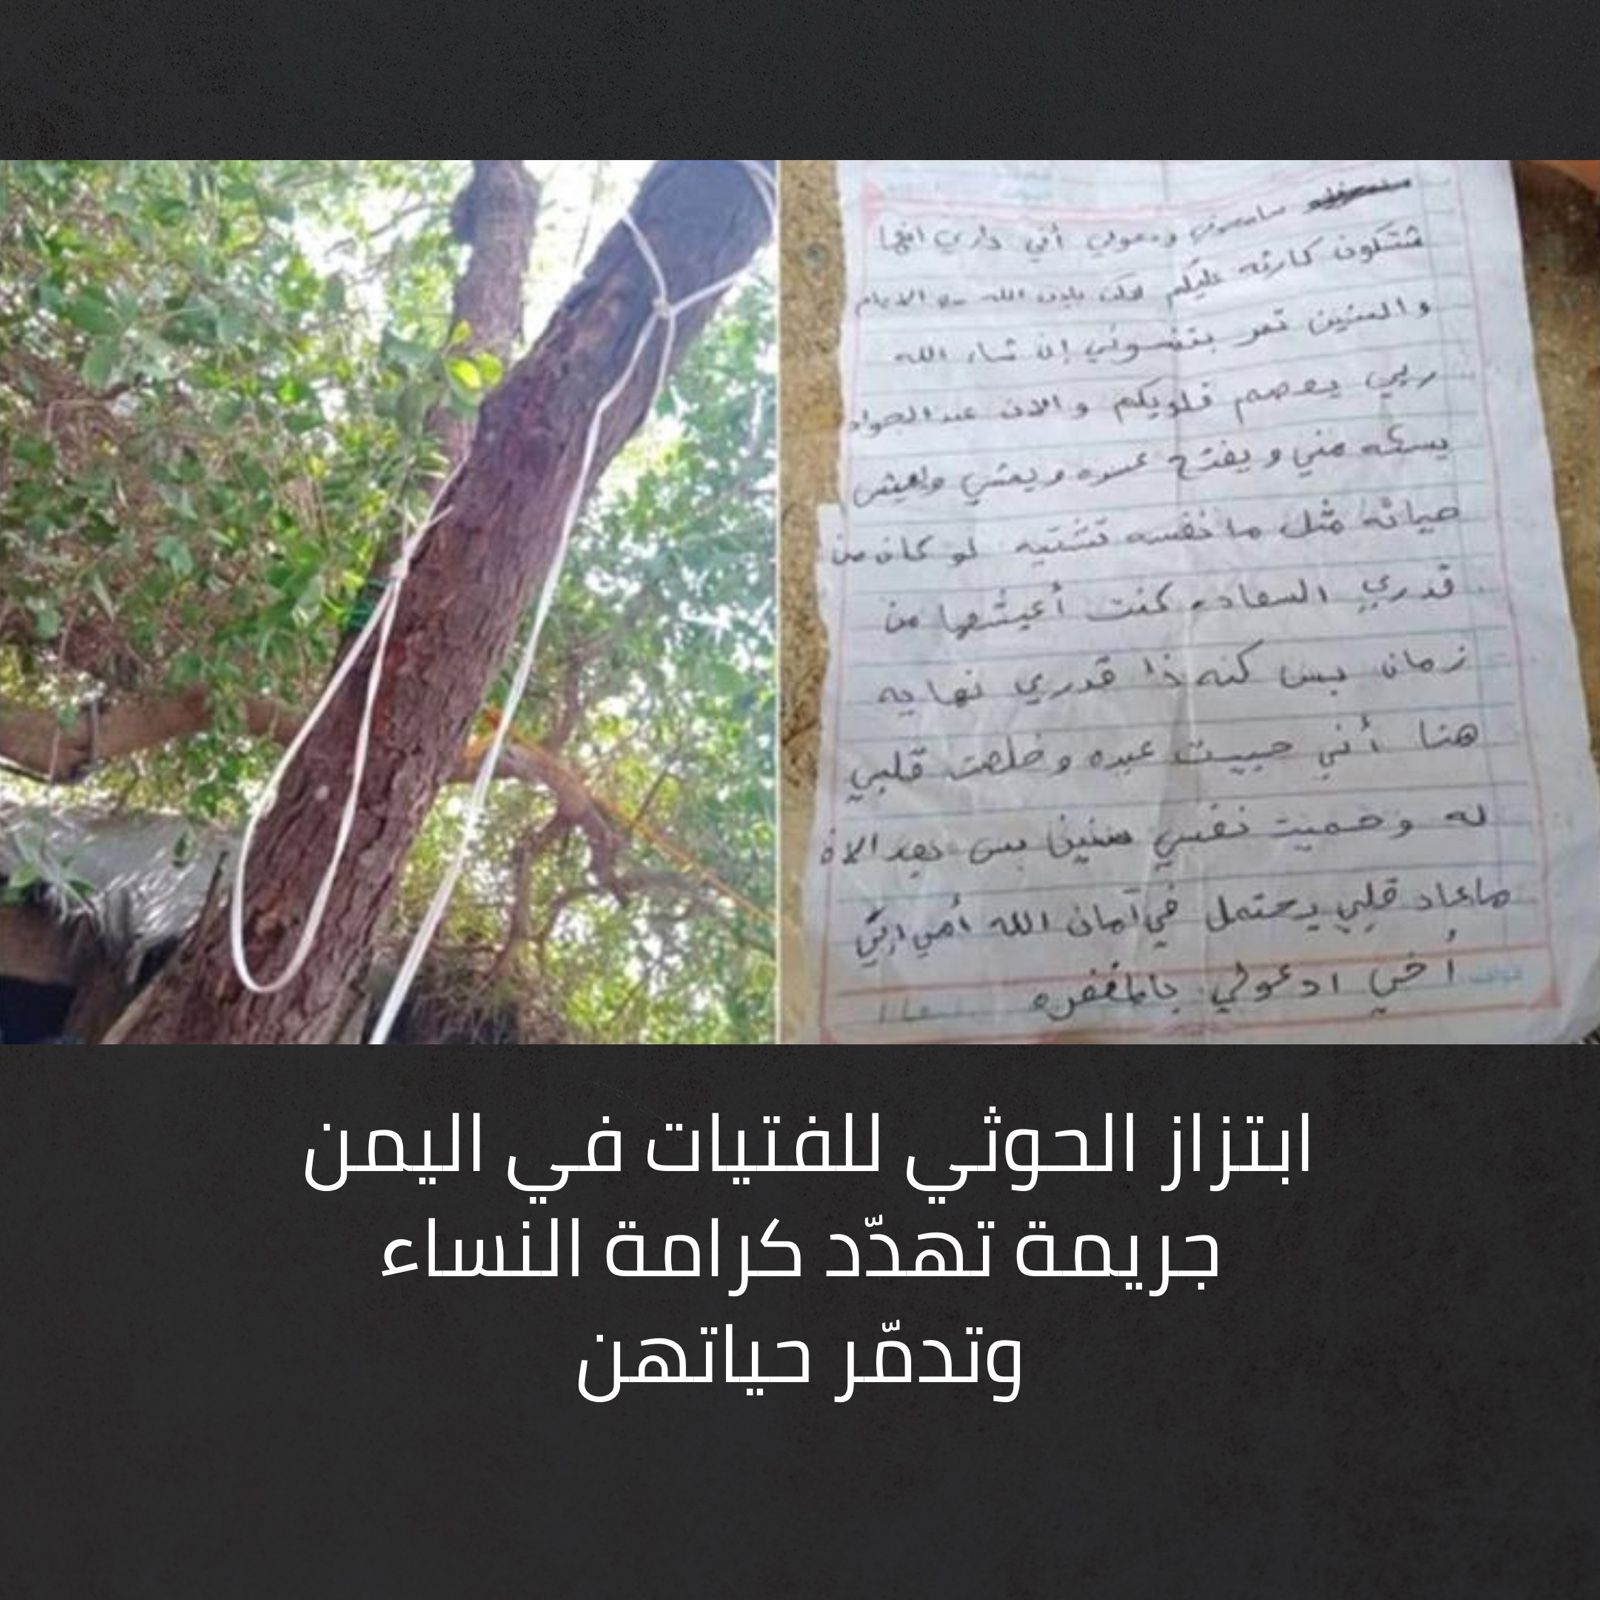 سامحوني ودعولي أني داري انها
شتكون كارثه عليكم لاكن بادن الله مع الايام
والسنين تمر بتنسوني إن شاء الله
ربي يعصم قلوبكم والان عبدالجواد
يسته مني ويفتح عسوه ويمشي وايعيش
حياته مثل ما نفسه تشتيه لو كان من
قدري السعاده كنت أعيشها من
زمان بس كنه ذا قدري نهايه
هنا أني حبيت عبده وخلصت قلبي
له وضميت نفسي سنين بس بعد الان
ماعاد قلبي يحتمل في آمان الله أمي ابي
أخي ادعولي بالمغفره
ابتزاز الحوثي للفتيات في اليمن
جريمة تهدّد كرامة النساء
وتدمّر حياتهن